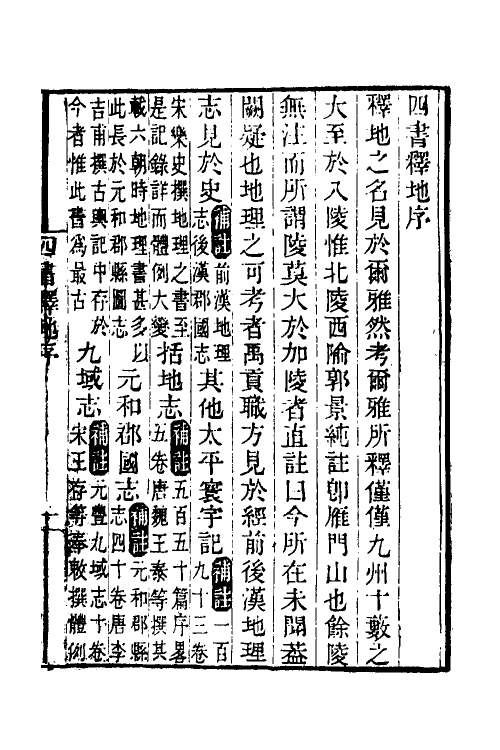 四書釋地序
釋地之名見於爾雅然考爾雅所釋僅僅九州十藪之
大至於八陵惟北陵西隃郭景純註卽雁門山也餘陵
無注而所謂陵莫大於加陵者直註曰今所在未聞蓋
闕疑也地理之可考者禹貢職方見於經前後漢地理
志見於史補註前漢地理志後漢郡國志其他太平寰宇記補註一百九十三卷
宋樂史撰地理之書至是記錄詳而體例大變括地志補註五百五十篇序畧五卷唐魏王泰等撰其
載六朝時地理書甚多以此長於元和郡縣圖志元和郡國志補註元和郡縣志四十卷唐李
吉甫撰古輿記中存於今者惟此書為最古九域志補註元豐九域志十卷宋王存等奉敕撰體例
四書釋地序
一